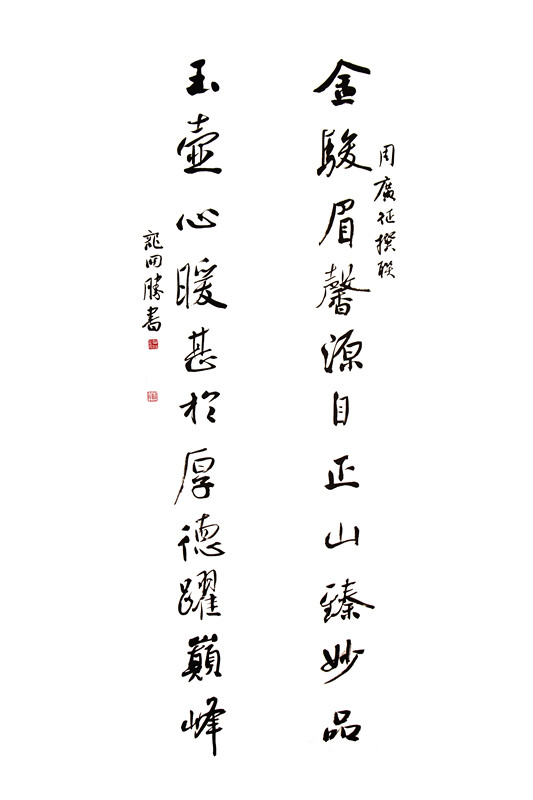 金駿眉馨源自正山臻妙品
周廣征撰联
玉壺心暖甚於厚德躍巔峰
龍開勝書